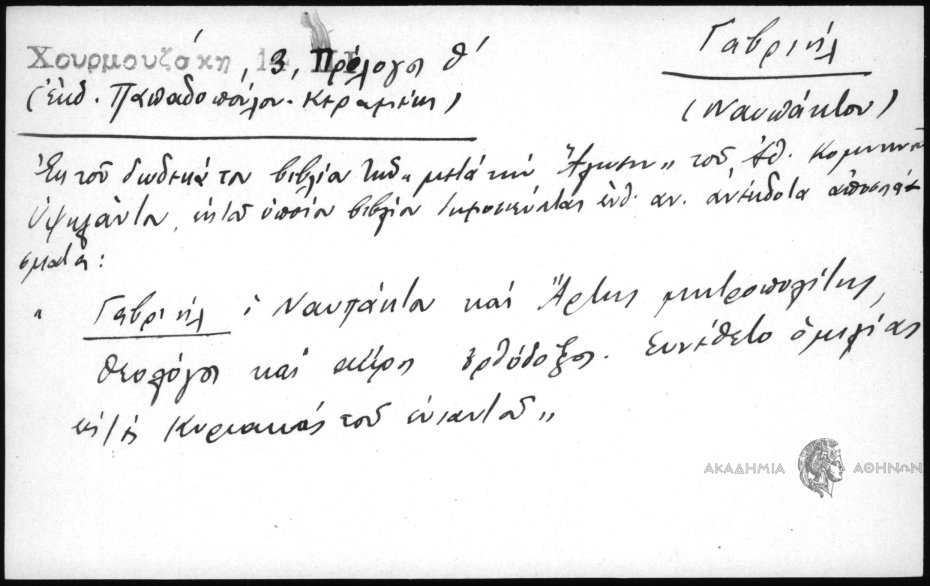 Χουρμουζάκη, 3, Πρόλογος θ'
(ἐκδ. Παπαδοπούλου-Κεραμέως)
Γαβριήλ
(Ναυπάκτου)
Ἐκ τοῦ δωδεκάτου βιβλίου τῶν „μετὰ τὴν Ἅλωσιν„ τοῦ Ἀθ. Κομνηνοῦ
Ὑψηλάντου, ὁποίου βιβλίου ἀνέκδοτα ἀποσπά-
σματα:
„ Γαβριήλ ὁ Ναυπάκτου καὶ Ἄρτης μητροπολίτης,
θεολόγος καὶ ἄκρος ὀρθόδοξος. Συνέθετο ὁμιλίας
εἰς τὰς Κυριακὰς τοῦ ἐνιαυτοῦ„
ΑΚΑΔΗΜΙΑ ΑΘΗΝΩΝ